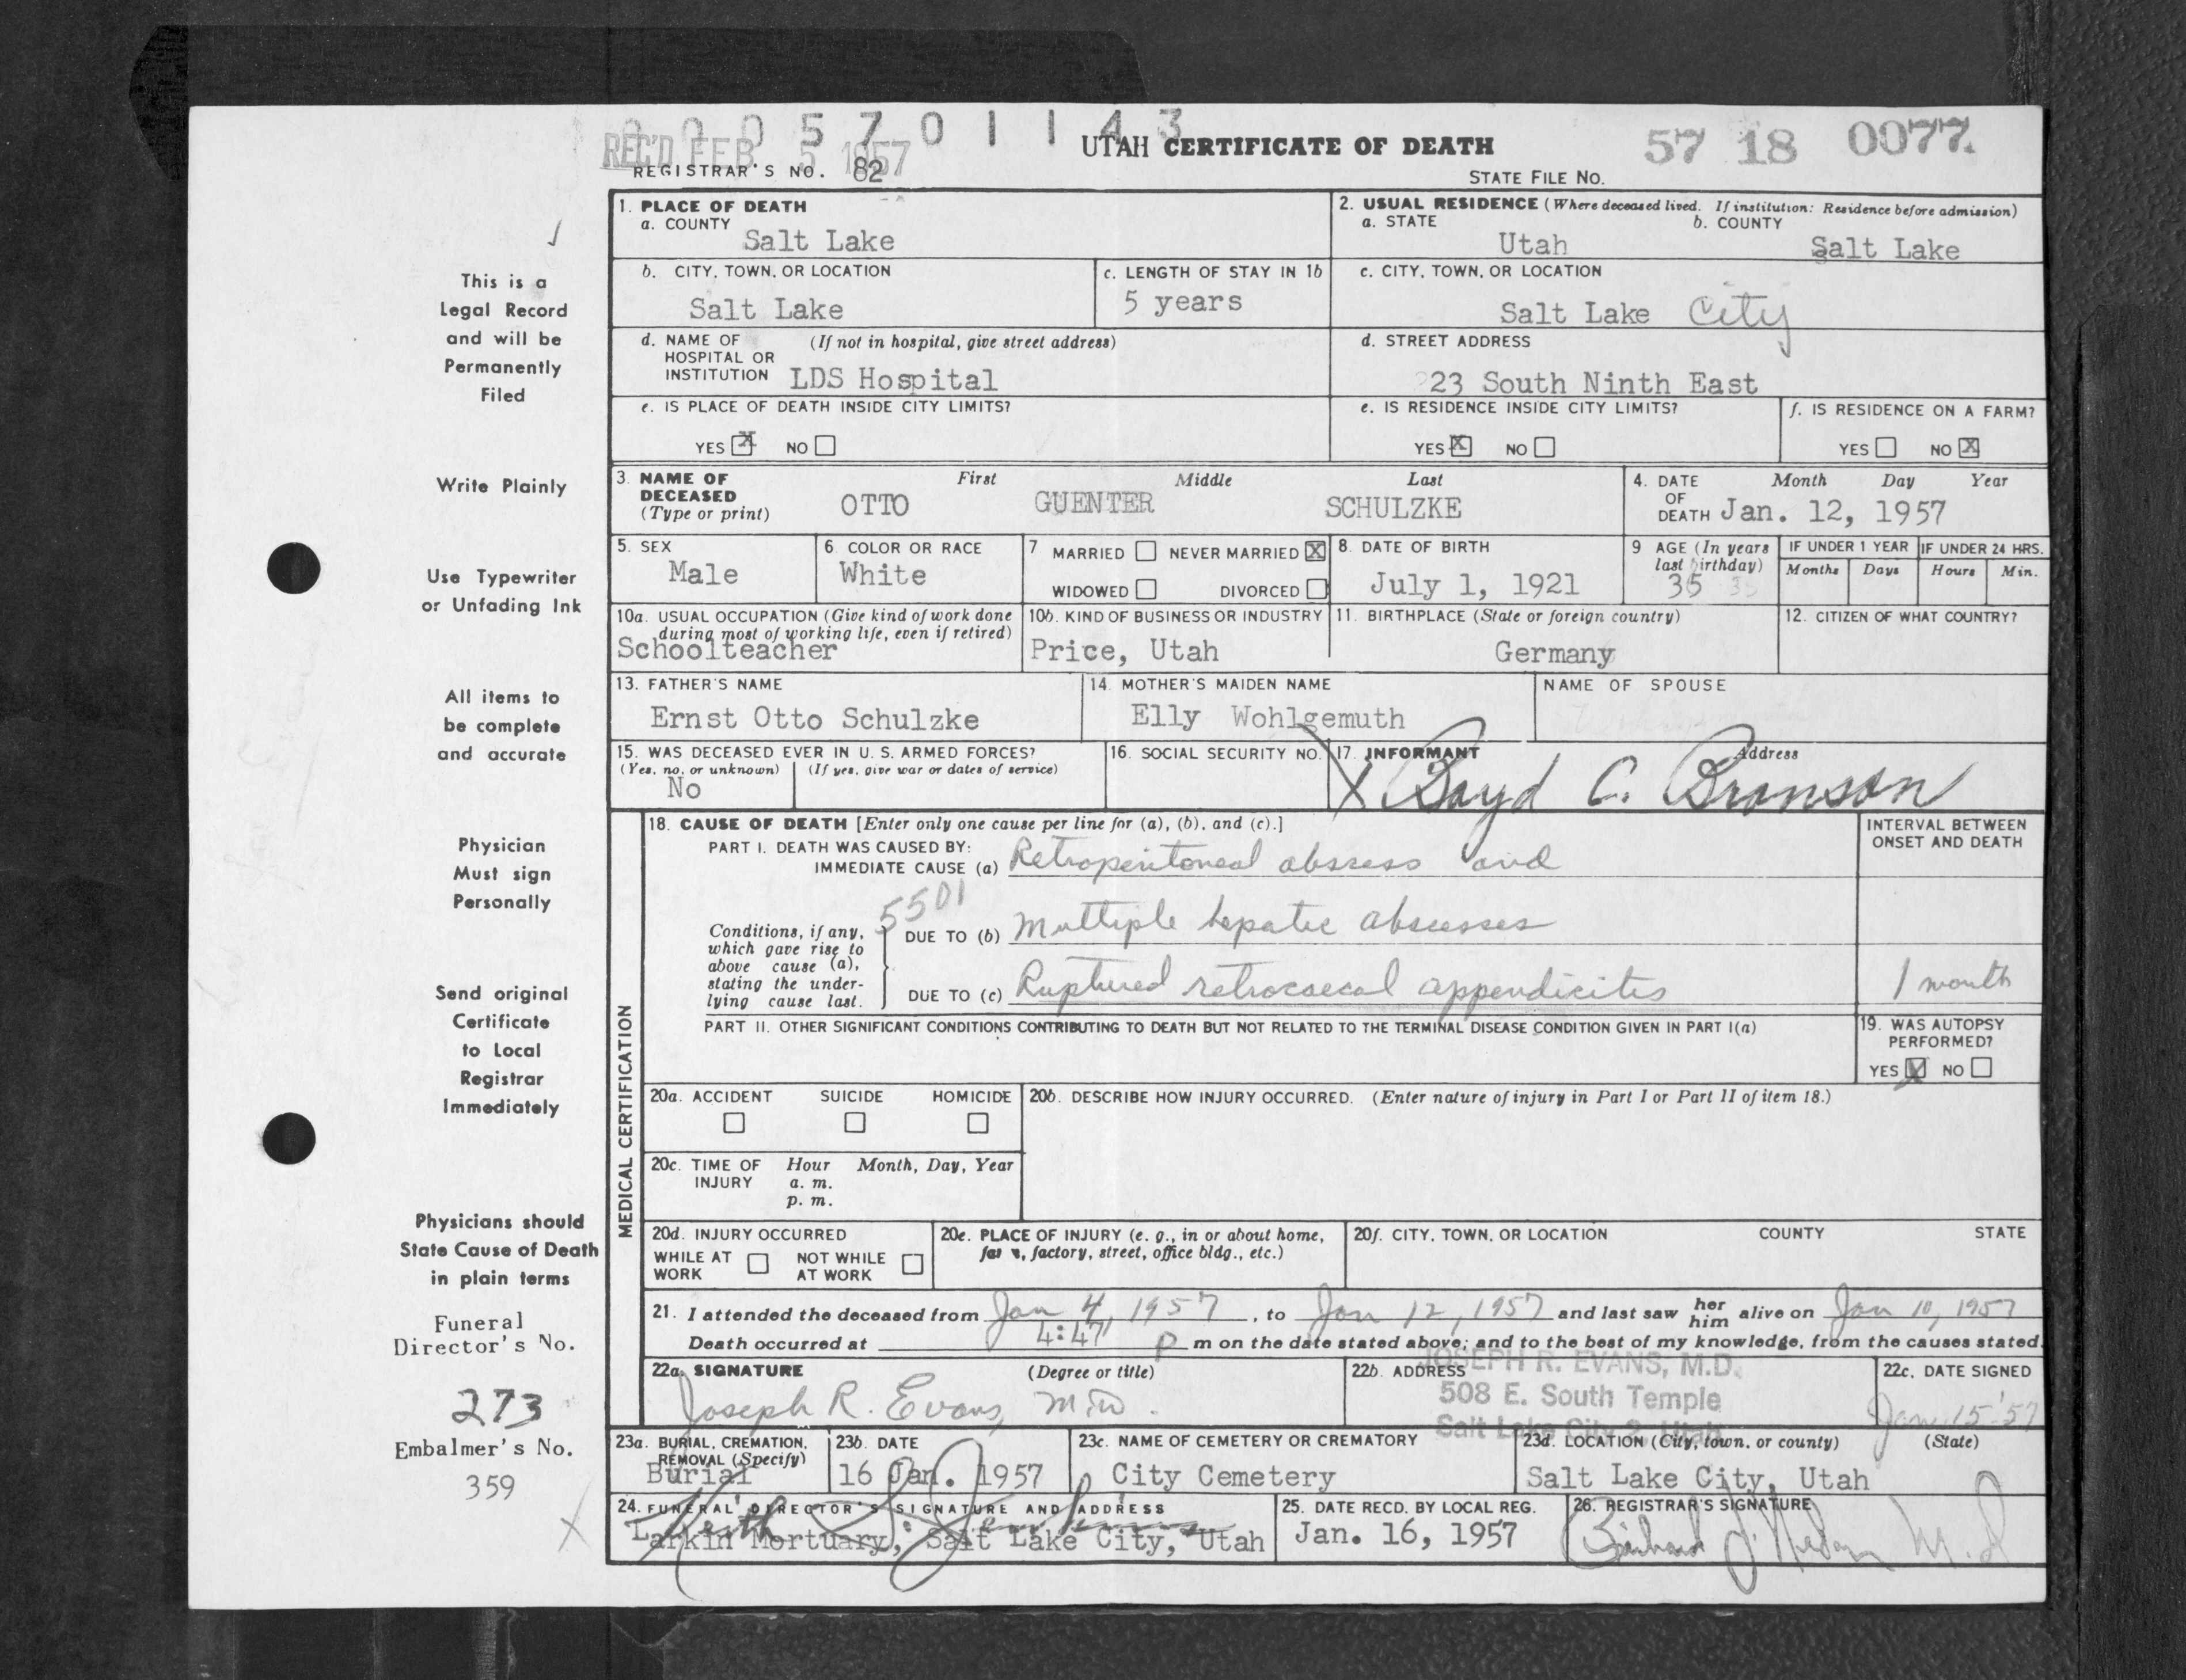 0 0 0 5 7 0 1 1 4 3
REC'D FEB 5 1957
UTAH CERTIFICATE OF DEATH
57 18 0077
REGISTRAR'S NO. 82
STATE FILE NO.
This is a
Legal Record
and will be
Permanently
Filed
Write Plainly
Use Typewriter
or Unfading Ink
All items to
be complete
and accurate
Physician
Must sign
Personally
Send original
Certificate
to Local
Registrar
Immediately
Physicians should
State Cause of Death
in plain terms
Funeral
Director's No.
273
Embalmer's No.
359
1. PLACE OF DEATH
a. COUNTY
Salt Lake
2. USUAL RESIDENCE (Where deceased lived. If institution: Residence before admission)
a. STATE b. COUNTY
Utah Salt Lake
b. CITY, TOWN, OR LOCATION
Salt Lake
c. LENGTH OF STAY IN 1b
5 years
c. CITY, TOWN, OR LOCATION
Salt Lake City
d. NAME OF (If not in hospital, give street address)
HOSPITAL OR
INSTITUTION LDS Hospital
d. STREET ADDRESS
23 South Ninth East
e. IS PLACE OF DEATH INSIDE CITY LIMITS?
YES X NO
e. IS RESIDENCE INSIDE CITY LIMITS?
YES X NO
f. IS RESIDENCE ON A FARM?
YES NO X
3. NAME OF First Middle Last
DECEASED
(Type or print) OTTO GUENTER SCHULZKE
4. DATE Month Day Year
OF
DEATH Jan. 12, 1957
5. SEX
Male
6. COLOR OR RACE
White
7 MARRIED NEVER MARRIED X
WIDOWED DIVORCED
8. DATE OF BIRTH
July 1, 1921
9 AGE (In years
last birthday)
35
IF UNDER 1 YEAR IF UNDER 24 HRS.
Months Days Hours Min.
10a. USUAL OCCUPATION (Give kind of work done
during most of working life, even if retired)
Schoolteacher
10b. KIND OF BUSINESS OR INDUSTRY
Price, Utah
11. BIRTHPLACE (State or foreign country)
Germany
12. CITIZEN OF WHAT COUNTRY?
13. FATHER'S NAME
Ernst Otto Schulzke
14. MOTHER'S MAIDEN NAME
Elly Wohlgemuth
NAME OF SPOUSE
15. WAS DECEASED EVER IN U. S. ARMED FORCES?
(Yes, no, or unknown) (If yes, give war or dates of service)
No
16. SOCIAL SECURITY NO.
17. INFORMANT Address
X Boyd C. Bronson
MEDICAL CERTIFICATION
18. CAUSE OF DEATH [Enter only one cause per line for (a), (b), and (c).]
INTERVAL BETWEEN
ONSET AND DEATH
PART I. DEATH WAS CAUSED BY:
IMMEDIATE CAUSE (a) Retroperitoneal abscess and
5501
Conditions, if any,
which gave rise to
above cause (a),
stating the under-
lying cause last.
DUE TO (b) Multiple hepatic abscesses
DUE TO (c) Ruptured retrocaecal appendicitis
1 month
PART II. OTHER SIGNIFICANT CONDITIONS CONTRIBUTING TO DEATH BUT NOT RELATED TO THE TERMINAL DISEASE CONDITION GIVEN IN PART I(a)
19. WAS AUTOPSY
PERFORMED?
YES X NO
20a. ACCIDENT SUICIDE HOMICIDE
20b. DESCRIBE HOW INJURY OCCURRED. (Enter nature of injury in Part I or Part II of item 18.)
20c. TIME OF Hour Month, Day, Year
INJURY a. m.
p. m.
20d. INJURY OCCURRED
WHILE AT NOT WHILE
WORK AT WORK
20e. PLACE OF INJURY (e. g., in or about home,
farm, factory, street, office bldg., etc.)
20f. CITY, TOWN, OR LOCATION COUNTY STATE
21. I attended the deceased from Jan 4, 1957, to Jan 12, 1957 and last saw her him alive on Jan 10, 1957
Death occurred at 4:47 p m on the date stated above; and to the best of my knowledge, from the causes stated.
22a. SIGNATURE (Degree or title)
Joseph R. Evans, M.D.
22b. ADDRESS
JOSEPH R. EVANS, M.D.
508 E. South Temple
Salt Lake City 2, Utah
22c. DATE SIGNED
Jan. 15 '57
23a. BURIAL, CREMATION,
REMOVAL (Specify)
Burial
23b. DATE
16 Jan. 1957
23c. NAME OF CEMETERY OR CREMATORY
City Cemetery
23d. LOCATION (City, town, or county) (State)
Salt Lake City, Utah
24. FUNERAL DIRECTOR'S SIGNATURE AND ADDRESS
Larkin Mortuary, Salt Lake City, Utah
25. DATE RECD. BY LOCAL REG.
Jan. 16, 1957
26. REGISTRAR'S SIGNATURE